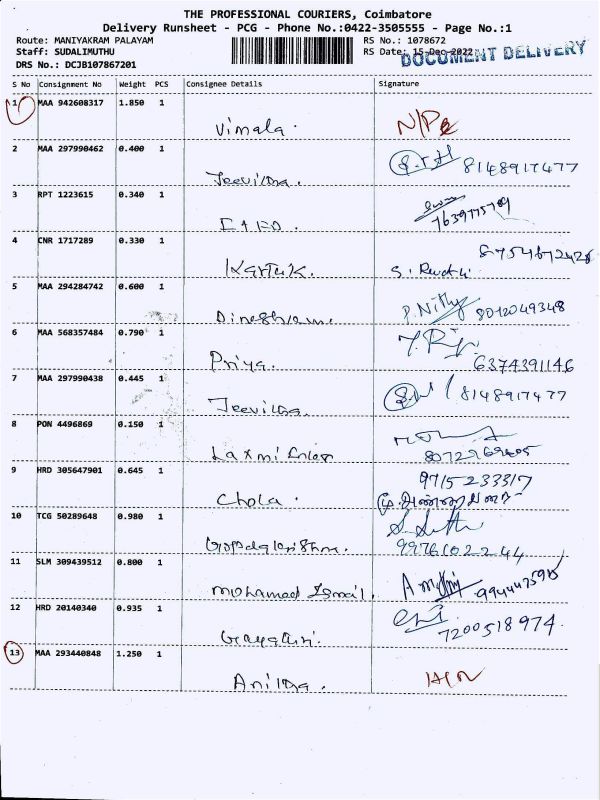 THE PROFESSIONAL COURIERS, Coimbatore
Delivery Runsheet - PCG - Phone No.:0422-3505555 - Page No.:1
Route: MANIYAKRAM PALAYAM RS No.: 1078672
Staff: SUDALIMUTHU RS Date: 15-Dec-2022
DOCUMENT DELIVERY
DRS No.: DCJB107867201
S No Consignment No Weight PCS Consignee Details Signature
1 MAA 942608317 1.850 1
Vimala.
2 MAA 297990462 0.400 1
8148917477
3 RPT 1223615 0.340 1
4 CNR 1717289 0.330 1
Kartik.
5 MAA 294284742 0.600 1
P. Nithy 8012049348
6 MAA 568357484 0.790 1
Priya. 6374391146
7 MAA 297990438 0.445 1
8148917477
8 PON 4496869 0.150 1
Laxmi
9 HRD 305647901 0.645 1 9715233317
Chola.
10 TCG 50289648 0.980 1
9976102244
11 SLM 309439512 0.800 1
Mohamed Ismail.
12 HRD 20140340 0.935 1
Gayatri. 7200518974.
13 MAA 293440848 1.250 1